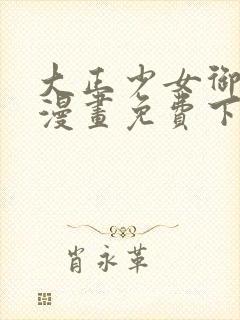 大正少女御
漫畫免費下
肖永革